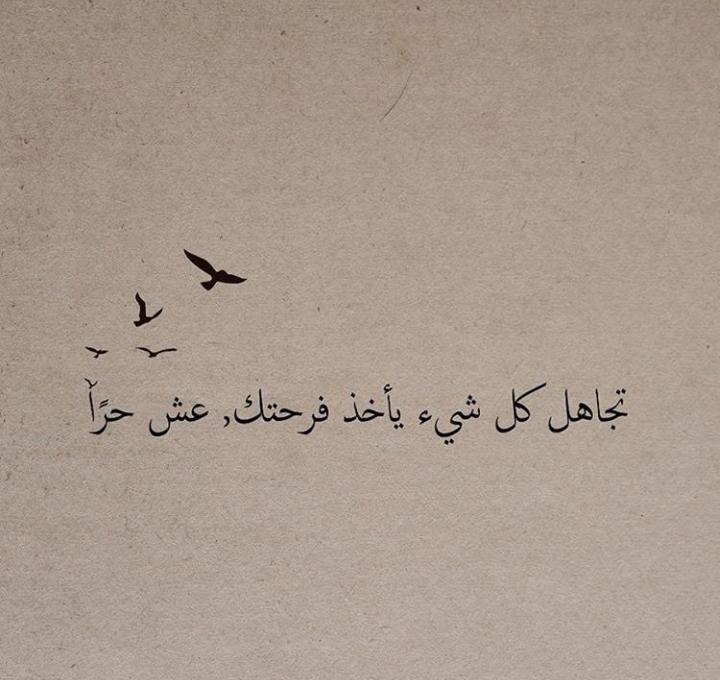 تجاهل كل شيء يأخذ فرحتك, عش حرًا